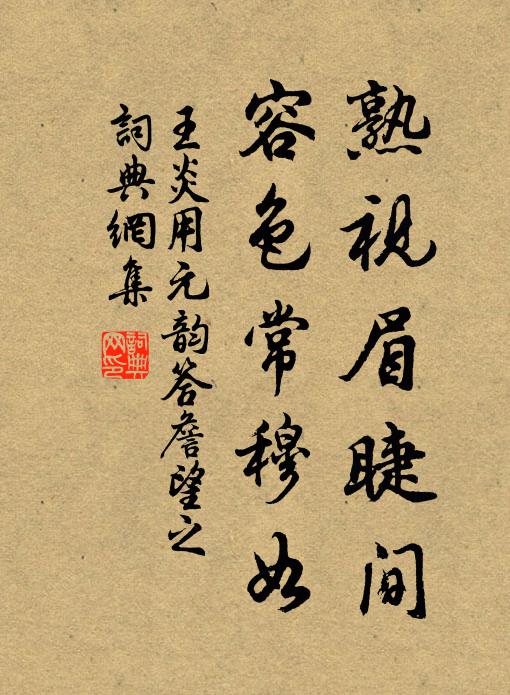 熟視眉睫间
容色常穆如
王炎用元韵答詹望之
詞典網集
詞典
网印